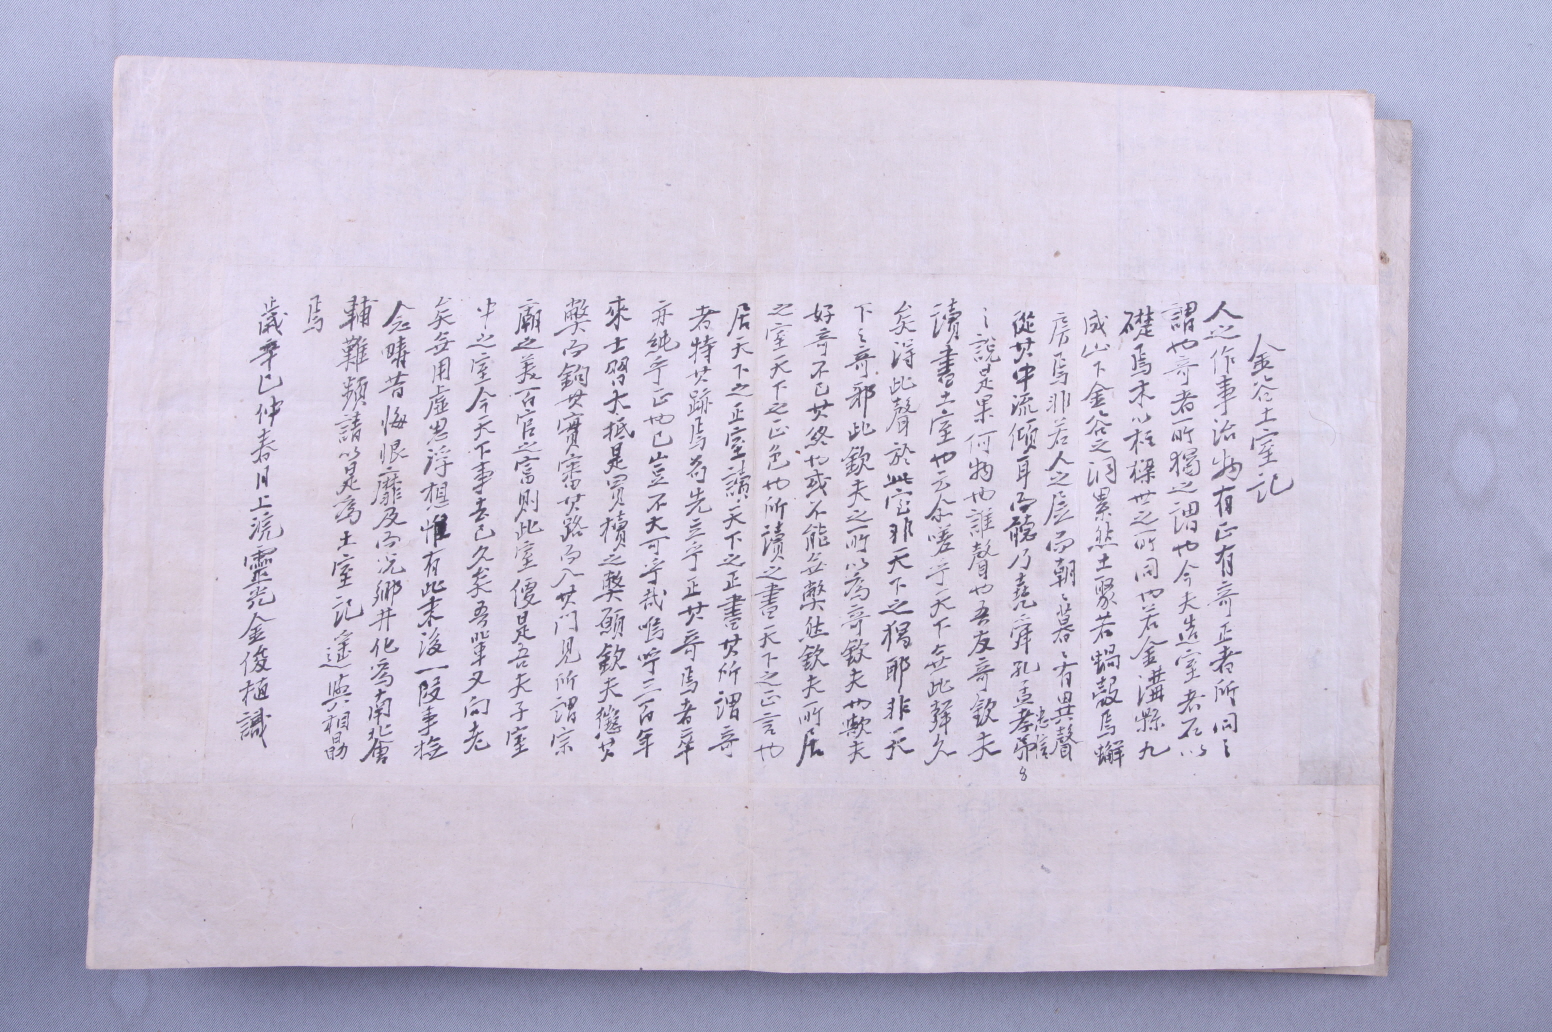 金谷土室記
人之作事治物有正有奇正者所同之
謂也奇者所獨之謂也今夫造室者石以
礎焉木以柱樑世之所同也若金溝縣九
成山下金谷之洞累然土聚若蝸殼焉蠏
居焉非若人之居而朝〻暮〻有異聲
從其中流傾耳而聽乃堯舜孔孟孝弟忠信
之說是果何物也誰聲也吾友奇欽夫
讀書土室也云余嗟乎天下無此聲久
矣得此聲於此室非天下之獨耶非天
下之奇邪此欽夫之所以爲奇欽夫也歟夫
好奇不已其終也或不能無獘然欽夫所居
之室天下之正色也所讀之書天下之正言也
居天下之正室讀天下之正書其所謂奇
者特其跡焉苟先立乎正其奇焉者卒
亦純乎正也已豈不大可乎哉嗚呼三百年
來士習大抵是買櫝之獘願欽夫懲其
獘而鉤其實審其路而入其門見所謂宗
廟之美百官之富則此室優是吾夫子室
中之室今天下事去已久矣吾輩又向老
矣無用虛思浮想惟有此末後一段事撿
念疇昔悔恨靡及而况鄉井化爲南北會
輔難頻請以是爲土室記遙與相勗
焉
歲辛巳仲春月上浣靈光金俊植識